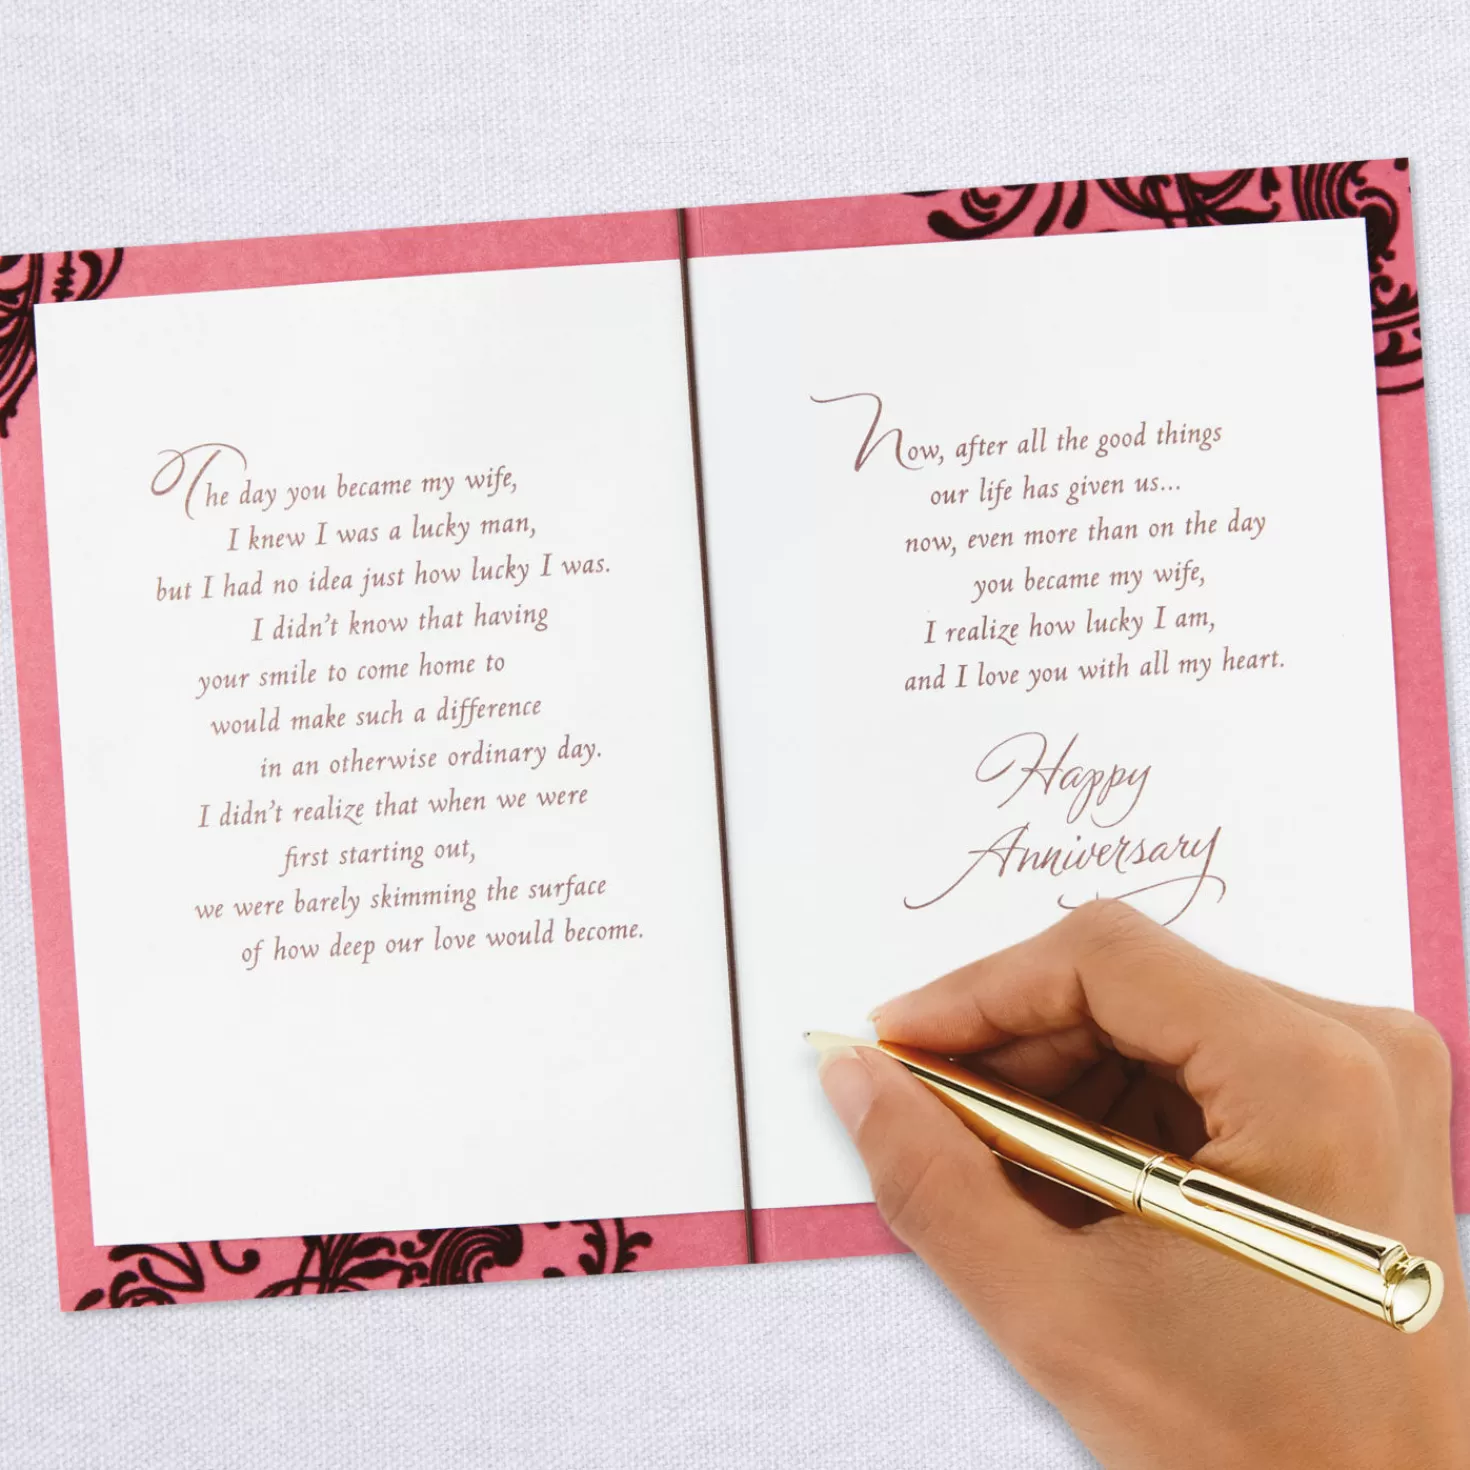 The day you became my wife,
I knew I was a lucky man,
but I had no idea just how lucky I was.
I didn't know that having
your smile to come home to
would make such a difference
in an otherwise ordinary day.
I didn't realize that when we were
first starting out,
we were barely skimming the surface
of how deep our love would become.
Now, after all the good things
our life has given us...
now, even more than on the day
you became my wife,
I realize how lucky I am,
and I love you with all my heart.
Happy
Anniversary